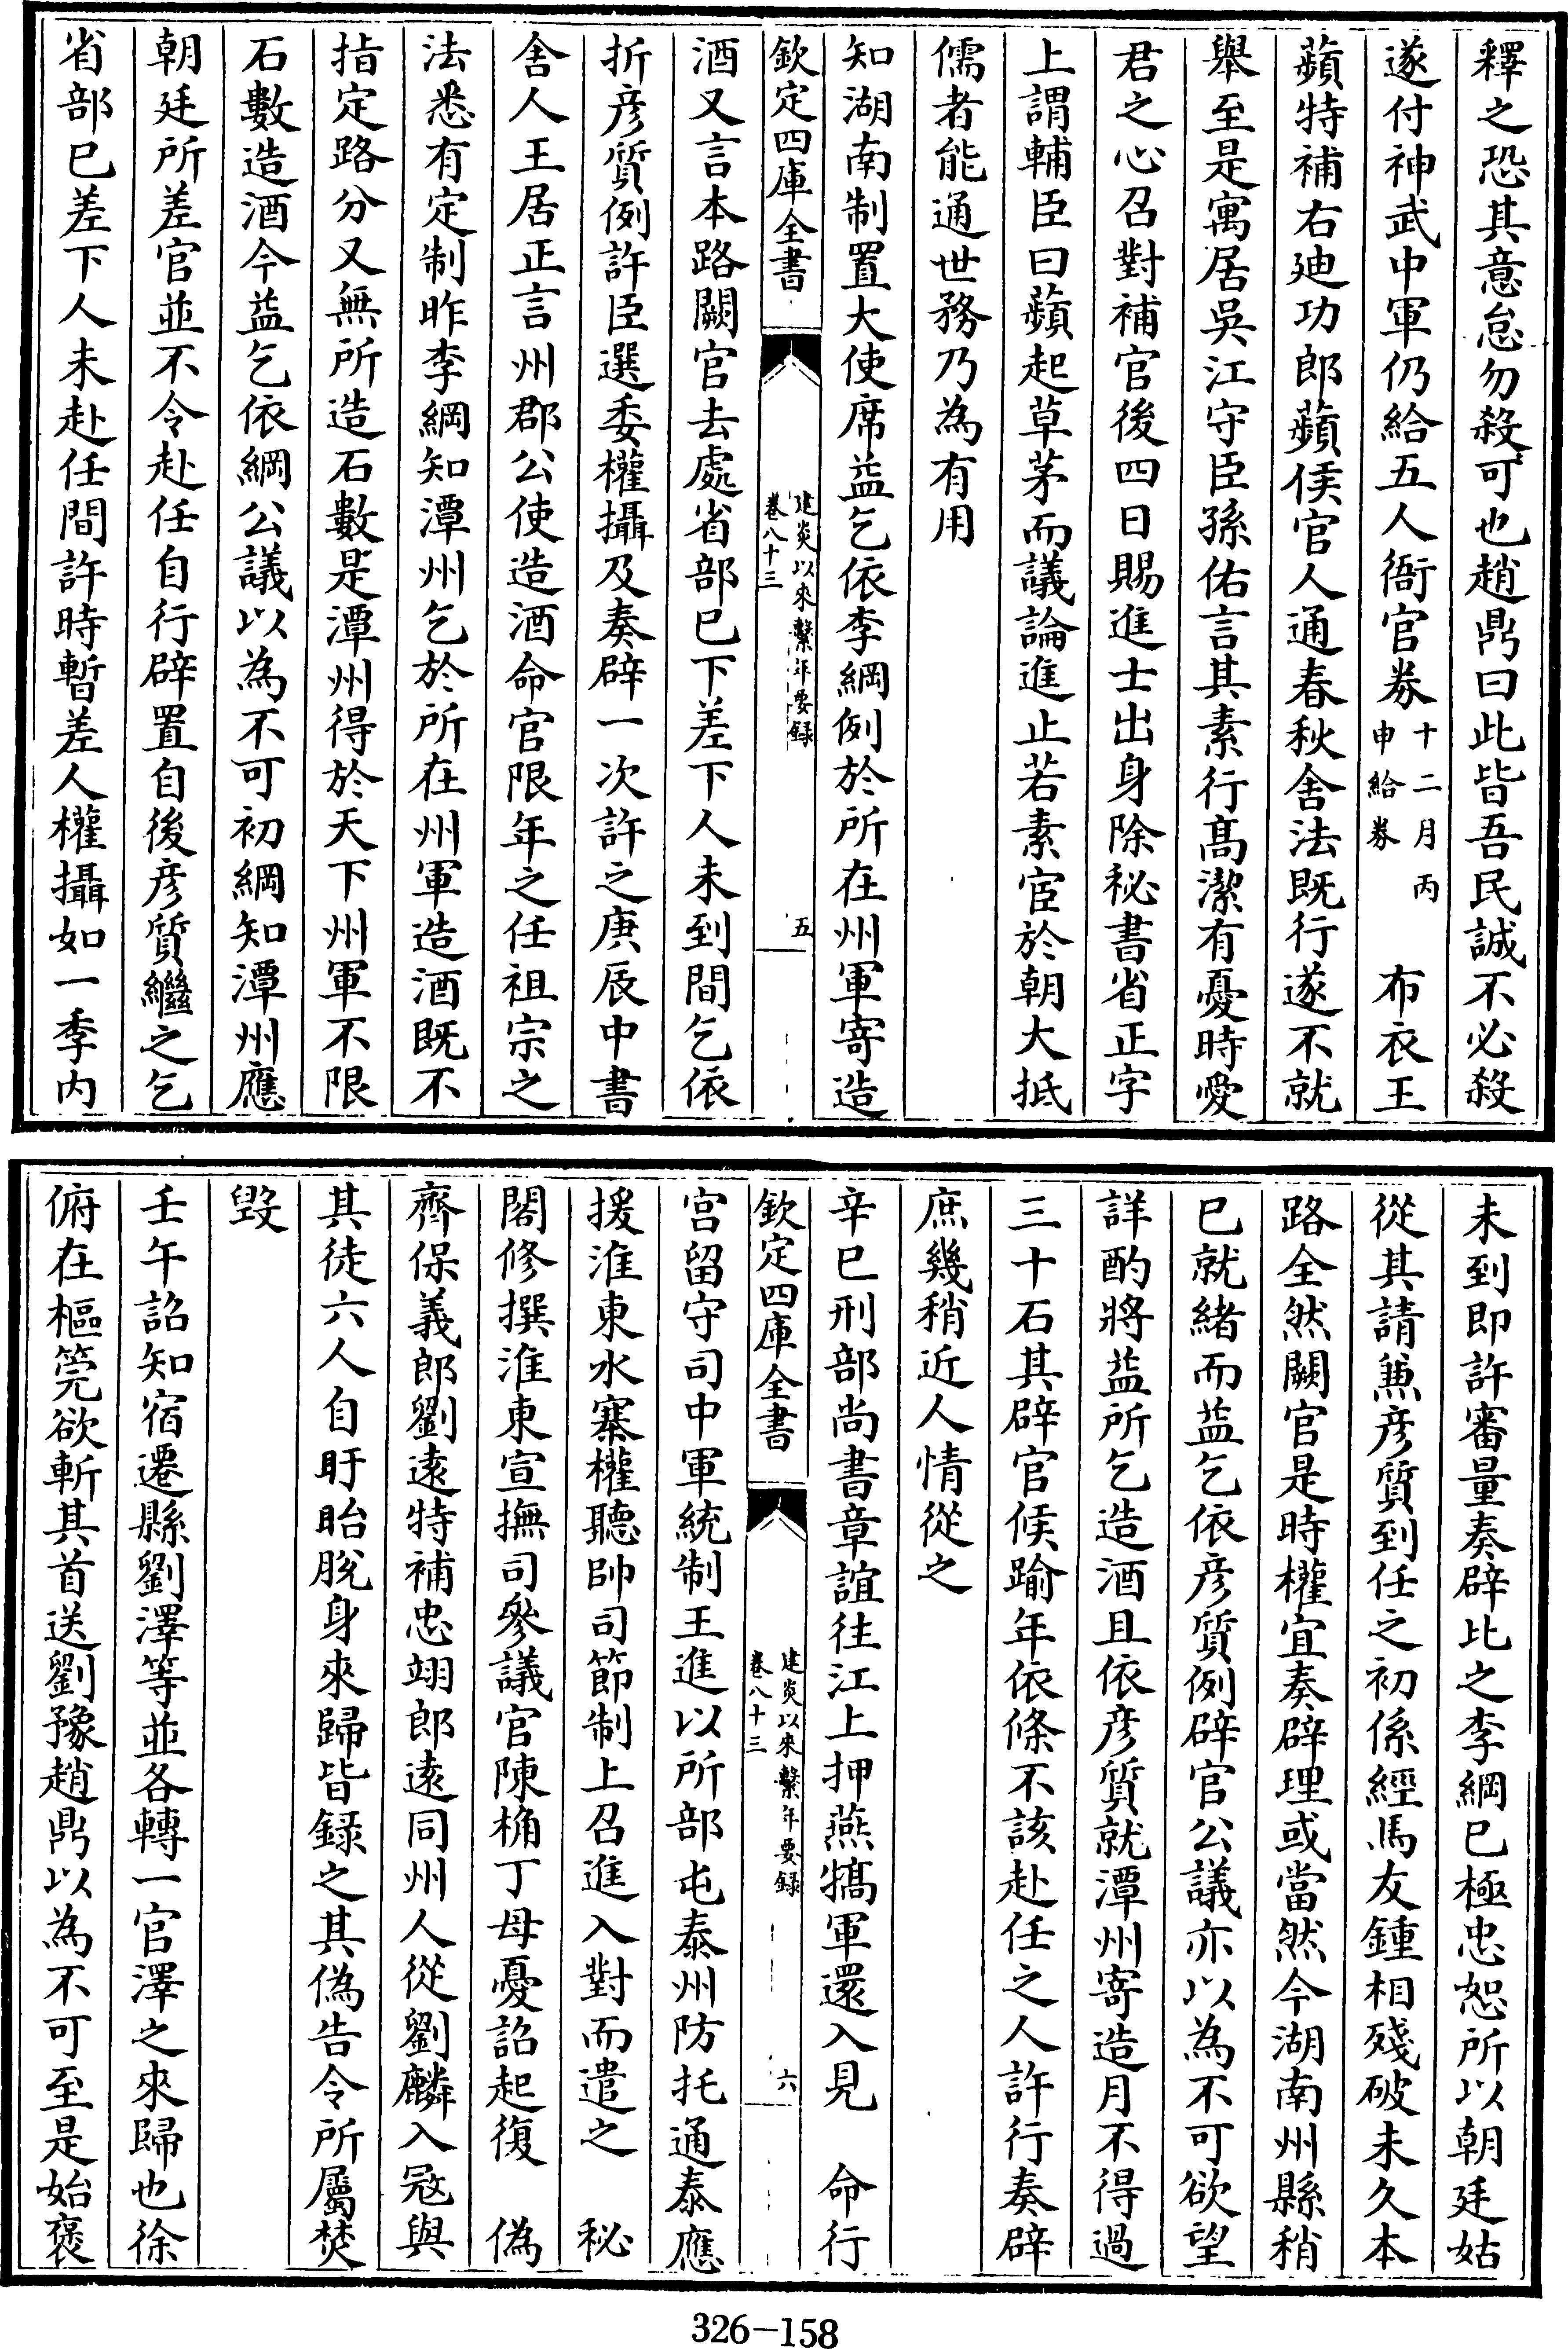 釋之恐其意怠勿殺可也趙鼎曰此皆吾民誠不必殺
遂付神武中軍仍給五人衙官券十二月丙申給券 布衣王
蘋特補右廸功郎蘋侯官人通春秋舍法既行遂不就
舉至是寓居吳江守臣孫佑言其素行髙潔有憂時愛
君之心召對補官後四日賜進士出身除秘書省正字
上謂輔臣曰蘋起草茅而議論進止若素宦於朝大抵
儒者能通世務乃為有用
知湖南制置大使席益乞依李綱例於所在州軍寄造
欽定四庫全書
建炎以來繫年要録
卷八十三
五
酒又言本路闕官去處省部已下差下人未到間乞依
折彦質例許臣選委權攝及奏辟一次許之庚辰中書
舍人王居正言州郡公使造酒命官限年之任祖宗之
法悉有定制昨李綱知潭州乞於所在州軍造酒既不
指定路分又無所造石數是潭州得於天下州軍不限
石數造酒今益乞依綱公議以為不可初綱知潭州應
朝廷所差官並不令赴任自行辟置自後彦質繼之乞
省部已差下人未赴任間許時暫差人權攝如一季内
未到即許審量奏辟比之李綱已極忠恕所以朝廷姑
從其請兼彦質到任之初係經馬友鍾相殘破未久本
路全然闕官是時權宜奏辟理或當然今湖南州縣稍
已就緒而益乞依彦質例辟官公議亦以為不可欲望
詳酌將益所乞造酒且依彦質就潭州寄造月不得過
三十石其辟官候踰年依條不該赴任之人許行奏辟
庶幾稍近人情從之
辛巳刑部尚書章誼往江上押燕犒軍還入見 命行
欽定四庫全書
建炎以來繫年要録
卷八十三
六
宫留守司中軍統制王進以所部屯泰州防托通泰應
援淮東水寨權聽帥司節制上召進入對而遣之 秘
閣修撰淮東宣撫司參議官陳桷丁母憂詔起復 偽
齊保義郎劉遠特補忠翊郎遠同州人從劉麟入冦與
其徒六人自盱眙脫身來歸皆録之其偽告令所屬焚
毀
壬午詔知宿遷縣劉澤等並各轉一官澤之來歸也徐
俯在樞筦欲斬其首送劉豫趙鼎以為不可至是始褒
326—158